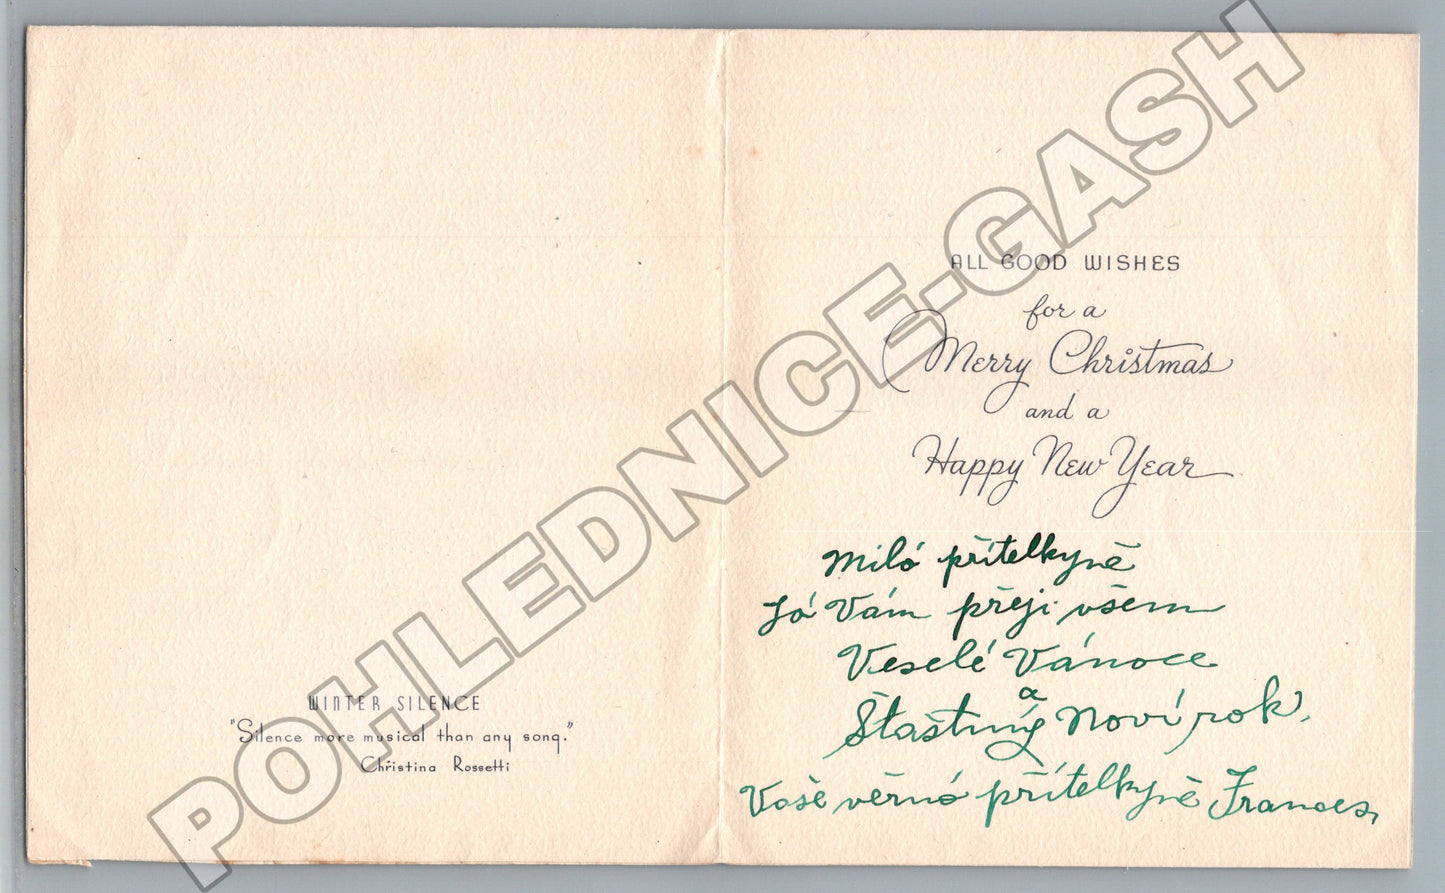 WINTER SILENCE
"Silence more musical than any song."
Christina Rossetti
ALL GOOD WISHES
for a
Merry Christmas
and a
Happy New Year
Milá přítelkyně
Já Vám přeji všem
Veselé Vánoce
a
Štaštný Noví rok.
Vaše věrná přítelkyně Frances,
POHLEDNICE-GASH